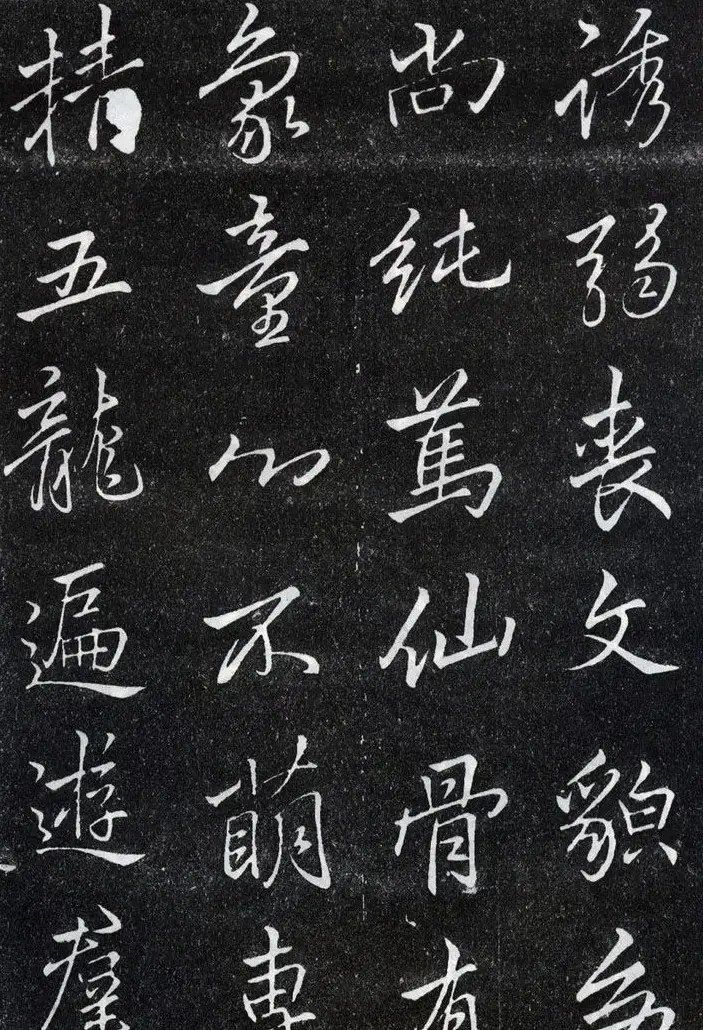 誘弱喪文貌
尚純篤仙骨有
象童心不萌專
精五龍遍遊羣